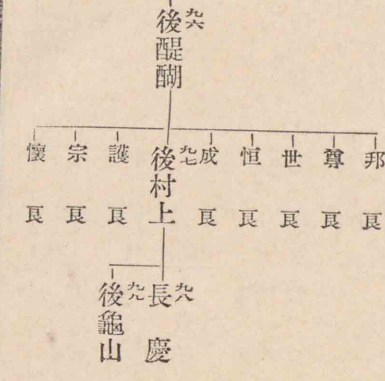 九六
後醍醐
邦良
尊良
世良
恒良
成良
九七
後村上
護良
宗良
懷良
九八
長慶
九九
後龜山